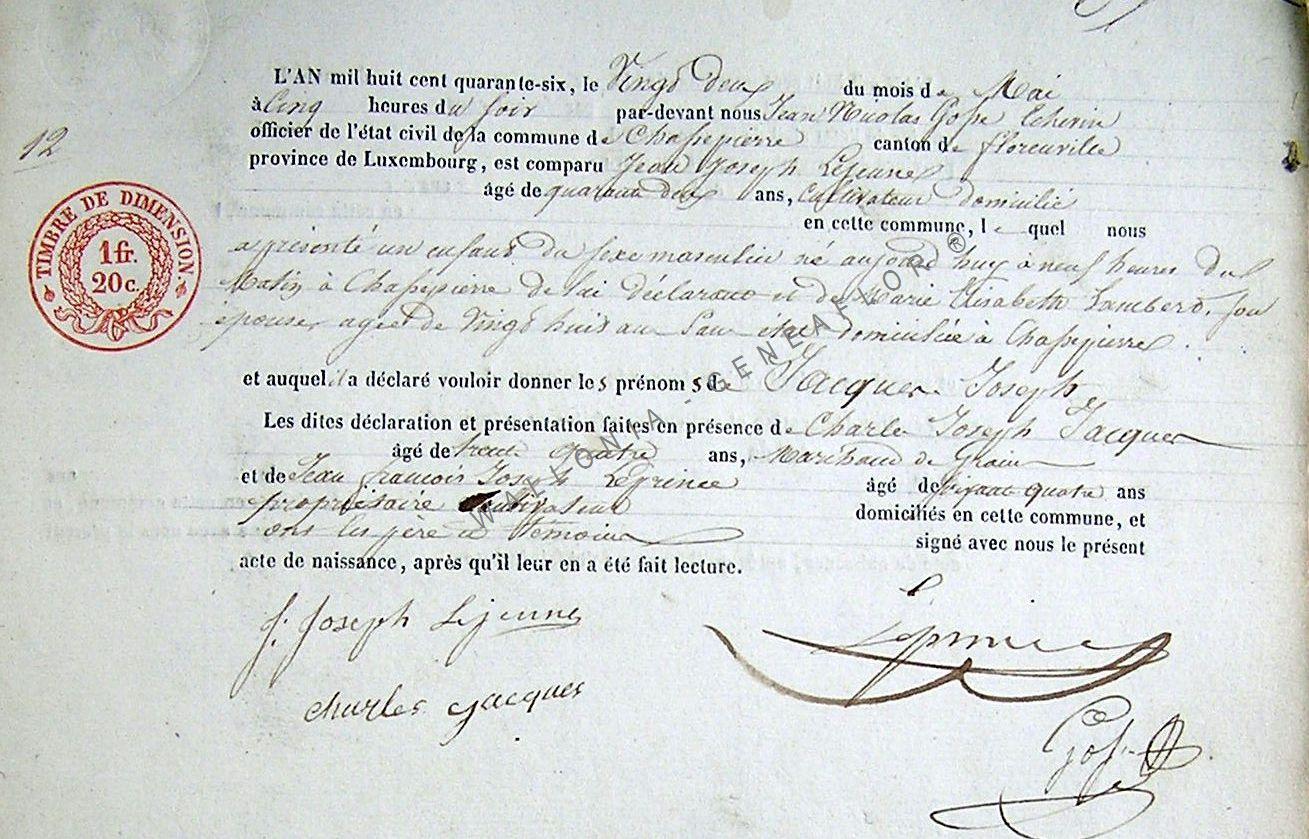 12
TIMBRE DE DIMENSION
1 fr.
20 c.
L'AN mil huit cent quarante-six, le Vingd deux du mois de Mai
à Cinq heures du soir par-devant nous Jean Nicolas Gosse Echevin
officier de l'état civil de la commune de Chassepierre canton de florenville
province de Luxembourg, est comparu Jean Joseph Lejeune
âgé de quarante deux ans, Cultivateur domicilié
en cette commune, le quel nous
a présenté un enfant du sexe masculin né aujourd huy à neuf heures du
Matin à Chassepierre de lui déclarant et de Marie Elisabeth Lambert, son
épouse, agée de Vingd huit ans Sans état domiciliée à Chassepierre.
et auquel il a déclaré vouloir donner les prénoms de Jacques Joseph
Les dites déclaration et présentation faites en présence de Charle Joseph Jacques
âgé de trente quatre ans, Marchand de Grain
et de Jean françois Joseph Leprince âgé de quatre ans
propriétaire Cultivateur domiciliés en cette commune, et
ont les père et témoins signé avec nous le présent
acte de naissance, après qu'il leur en a été fait lecture.
J. Joseph Lejeune Leprince
charles Jacques
Gosse
WALLONIA GENEAFLOR®